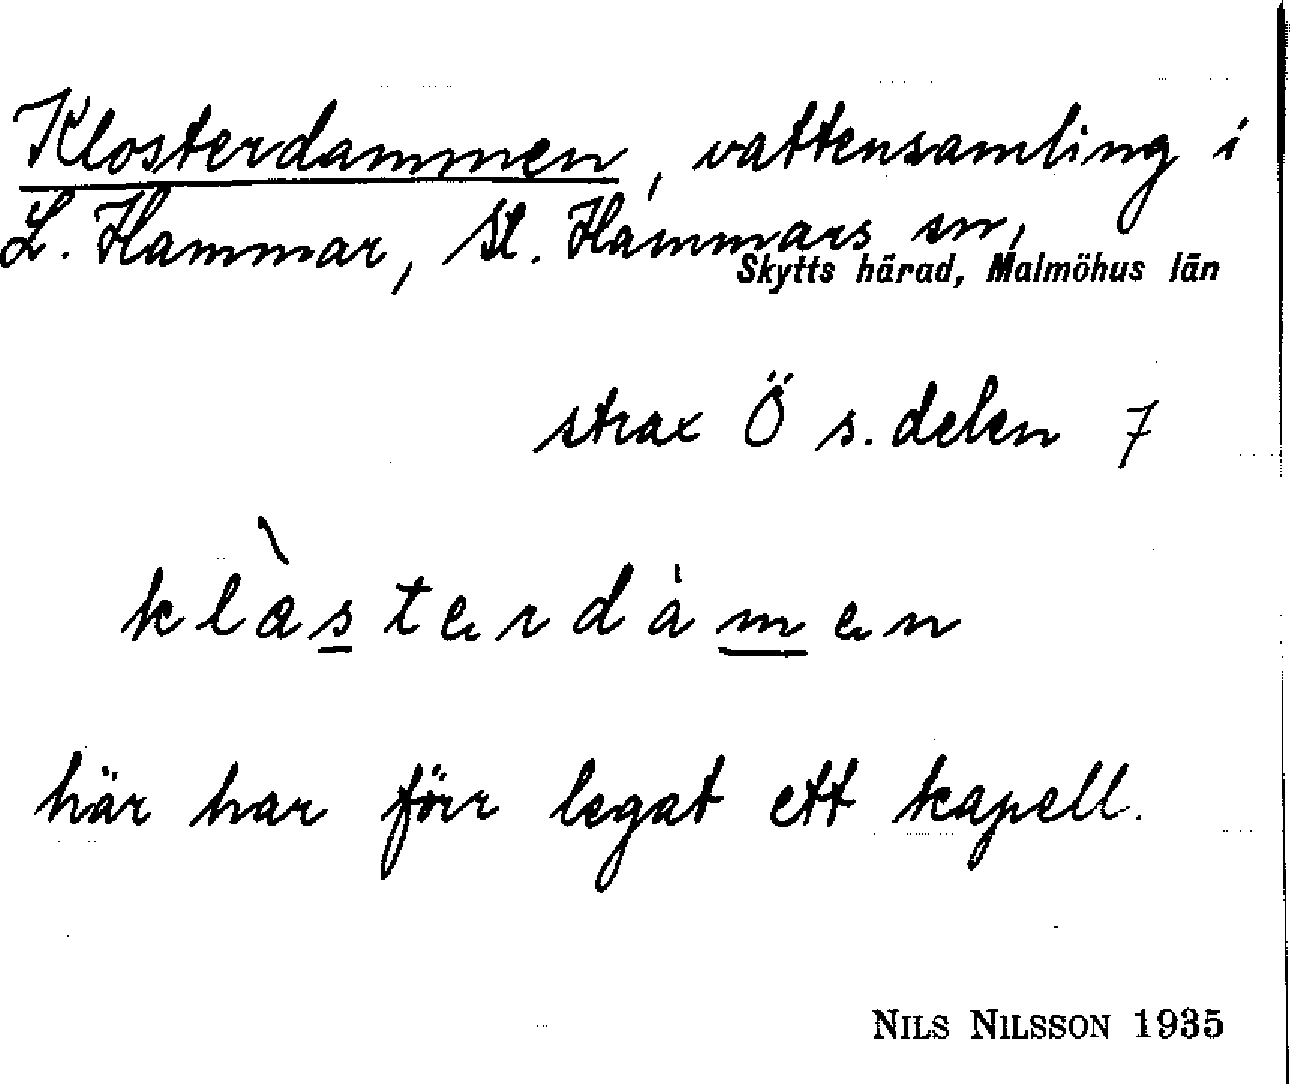 Klosterdammen, vattensamling i
L. Hammar, St. Hammars sn,
Skytts härad, Malmöhus län
strax Ö s. delen 7
klàsterdȧmen
här har förr legat ett kapell.
NILS NILSSON 1935